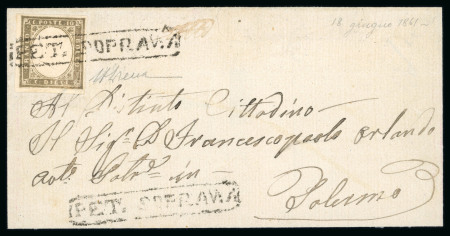 18 giugno 1861
PET. SOPRAVÀ
Al Distinto Cittadino
Il Sigr. D. Francescopaolo Orlando
in
Palermo
PET. SOPRAVÀ